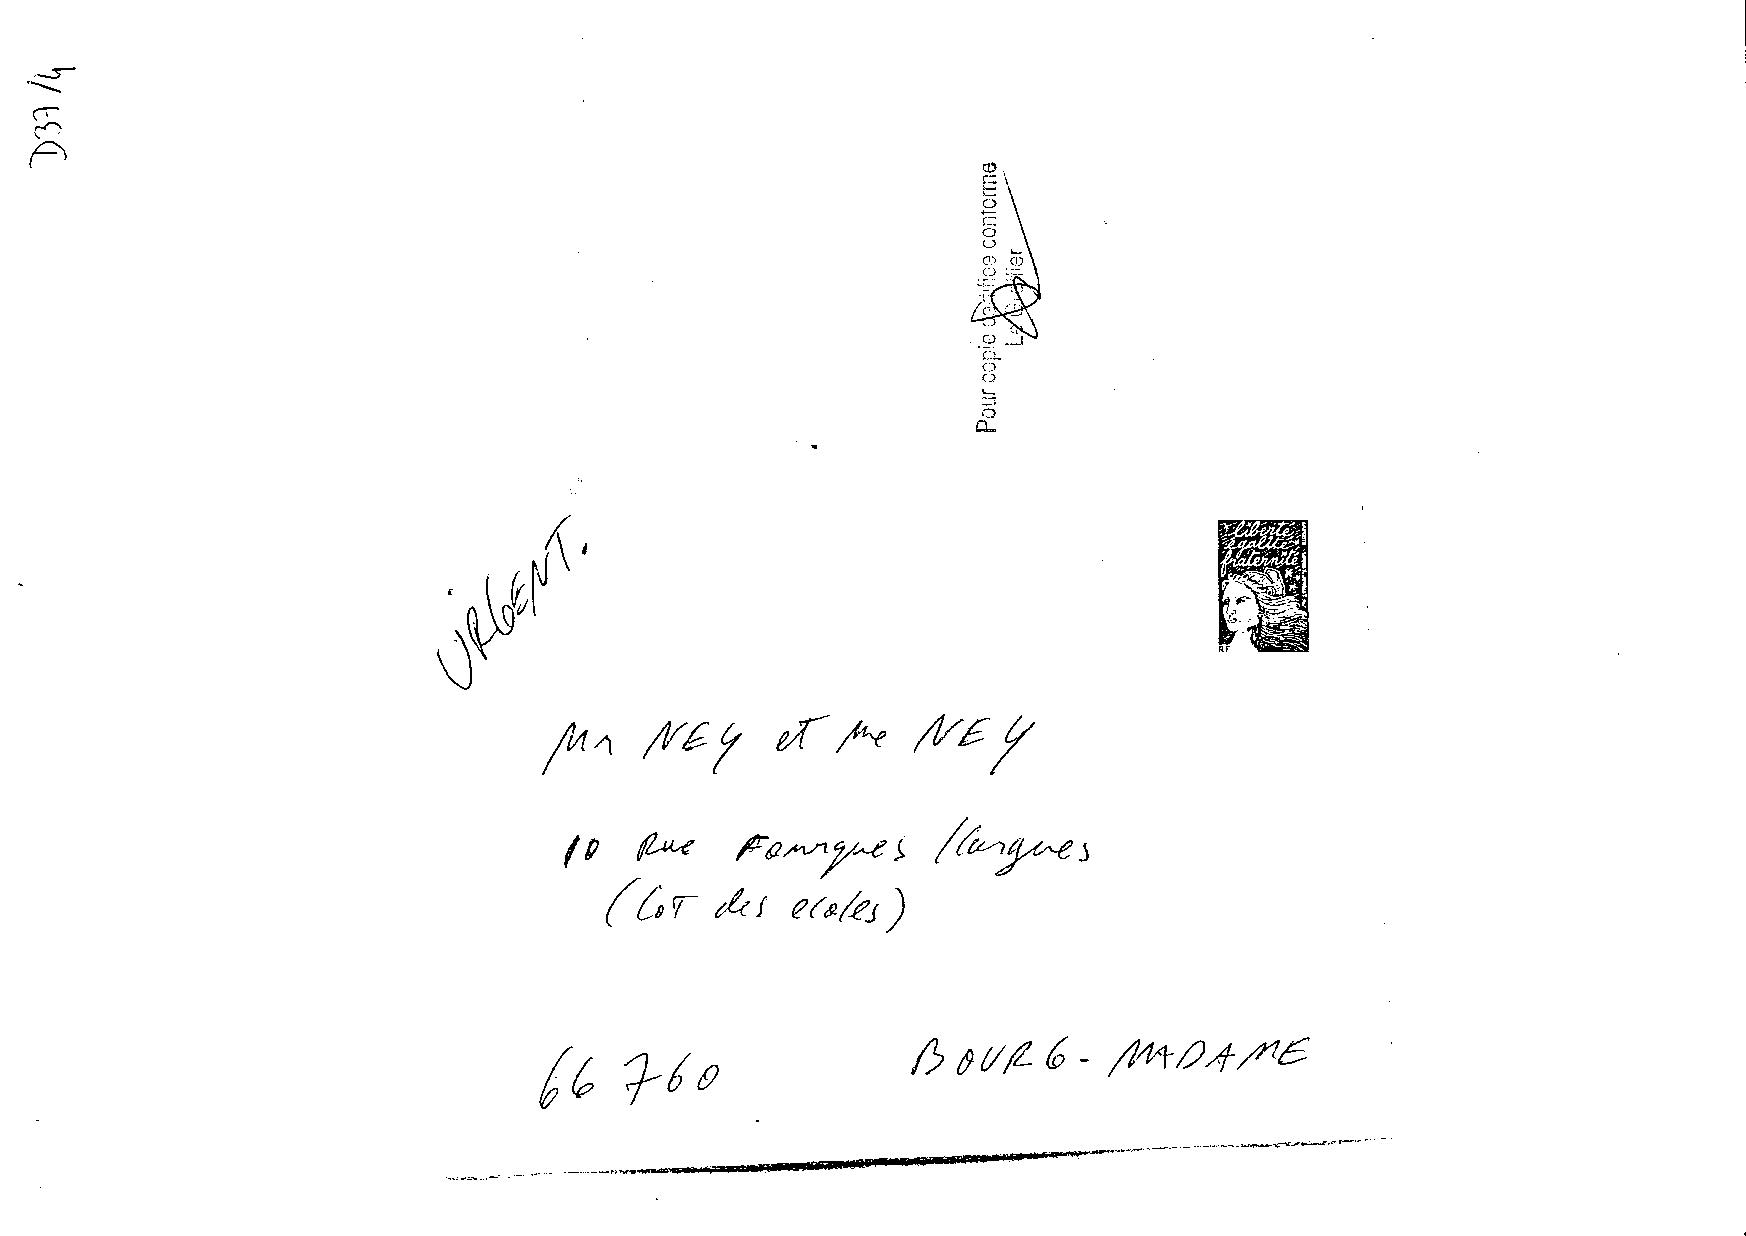 D37/4
Pour copie certifiée conforme
Le Greffier
liberté
égalité
fraternité
RF
URGENT.
Mr NEY et Me NEY
10 Rue Fourques /Cargues
(Lot des ecoles)
66760 BOURG-MADAME